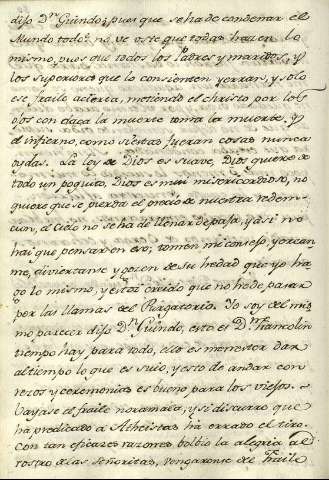 dijo Dn Guindo, pues que se ha de condenar el
Mundo todo? no ve ose que todas hazen lo
mismo, y mas que todos los Padres y maridos, y
los superiores que lo consienten yerran, y solo
ese fraile acierta, metiendo el christo por los
ojos con daca la muerte toma la muerte, y
el infierno, como si estas fueran cosas nunca
oydas. La ley de Dios es suave, Dios quiere de
todo un poquito, Dios es mui misericordioso, no
quiere que se pierda el precio de nuestra redemp-
cion, el cielo no se ha de llenar de paja, y asi no
hai que pensar en eso, tomen mi consejo, y crean
me, diviertanse y gozen de su hedad que yo ha
go lo mismo, y estoi creido que no he de pasar
por las llamas del Purgatorio. Yo soy del mis
mo parecer dijo Dn Guindo, esto es Dn francolin
tiempo hay para todo, ello es menester dar
al tiempo lo que es suio, y esto de andar con
rezos y ceremonias es bueno para los viejos.
Vayase el fraile noramala, y si discurrio que
ha predicado a Atheistas ha errado el tiro.
Con tan eficazes razones bolbio la alegria al
rostro de las señoritas, vengaronse del fraile